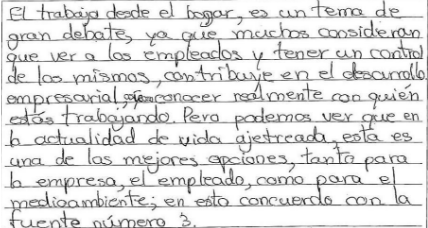 El trabajo desde el hogar, es un tema de
gran debate, ya que muchos consideran
que ver a los empleados y tener un control
de los mismos, contribuye en el desarrollo
empresarial, conocer realmente con quién
estás trabajando. Pero podemos ver que en
la actualidad de vida ajetreada, esta es
una de las mejores opciones, tanto para
la empresa, el empleado, como para el
medioambiente; en esto concuerdo con la
fuente número 3.